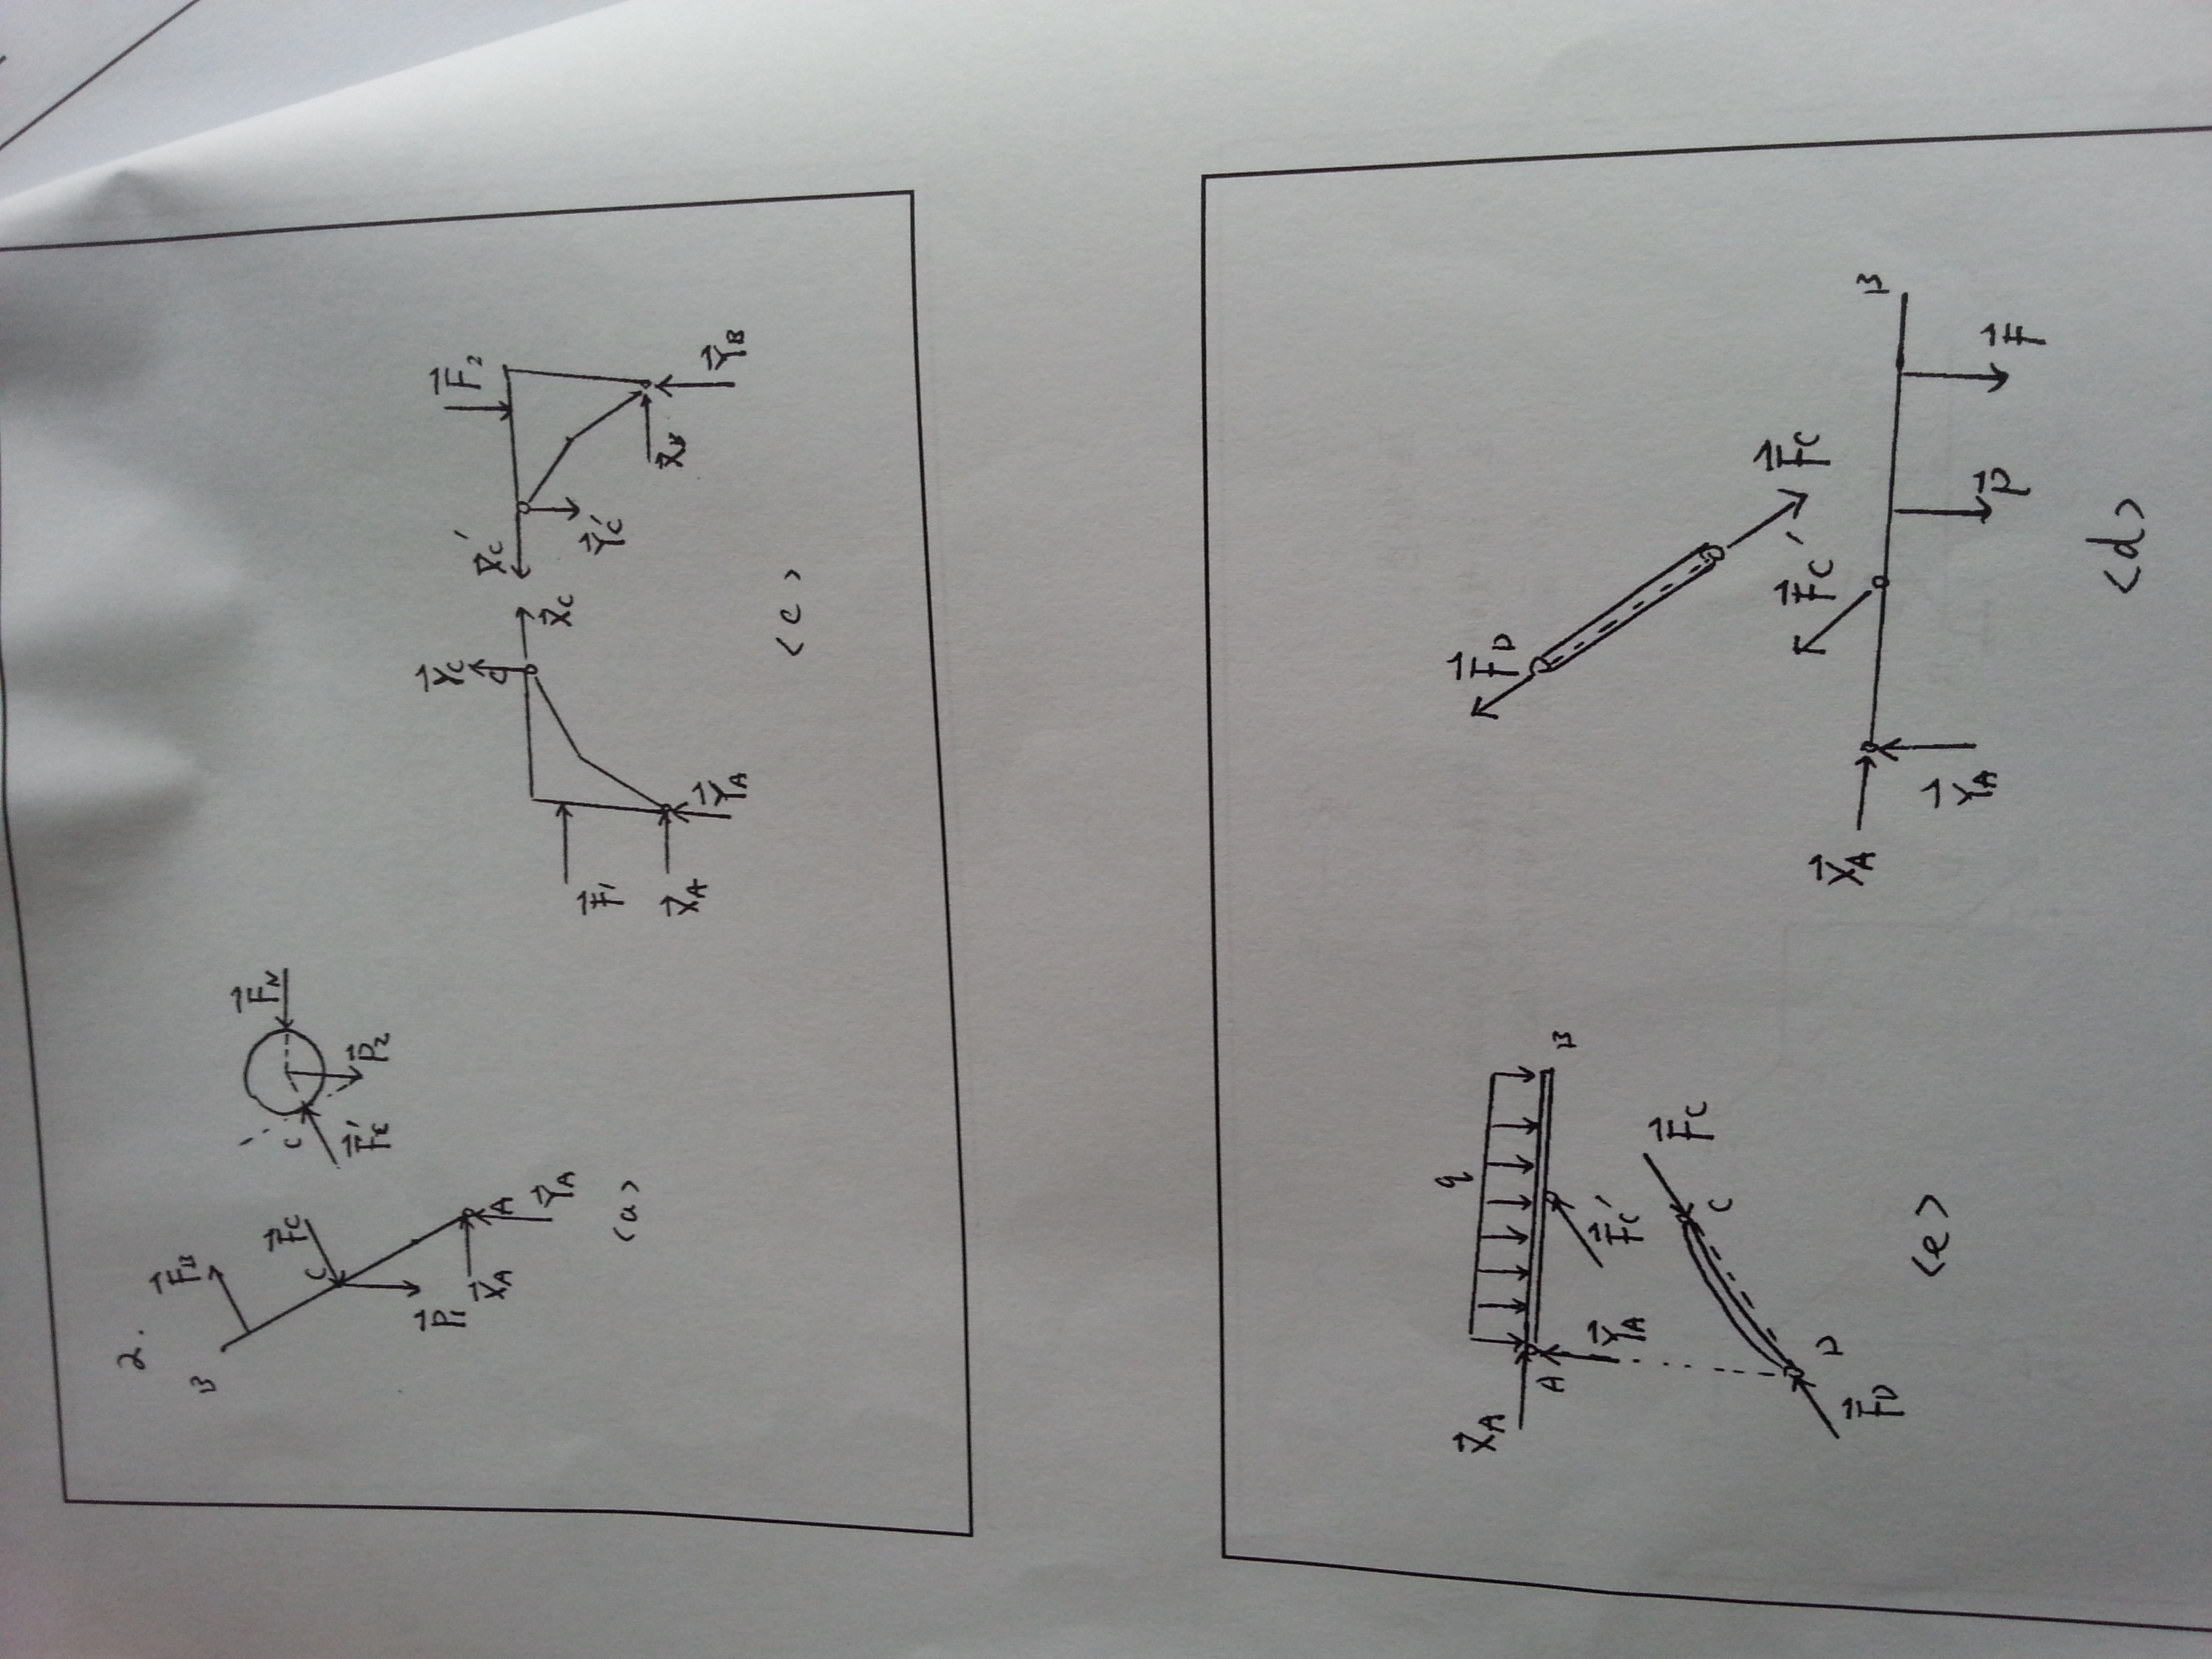 2.
B
F⃗B
F⃗C
C
P⃗1
X⃗A
A
Y⃗A
(a)
C
F⃗N
F⃗C′
P⃗2
Y⃗C
C
X⃗C
F⃗1
X⃗A
Y⃗A
X⃗C′
F⃗2
Y⃗C′
X⃗B
Y⃗B
(c)
q
X⃗A
A
B
Y⃗A
F⃗C′
F⃗C
C
D
F⃗D
<e>
F⃗D
F⃗C
F⃗C′
X⃗A
B
Y⃗A
P⃗
F⃗
<d>